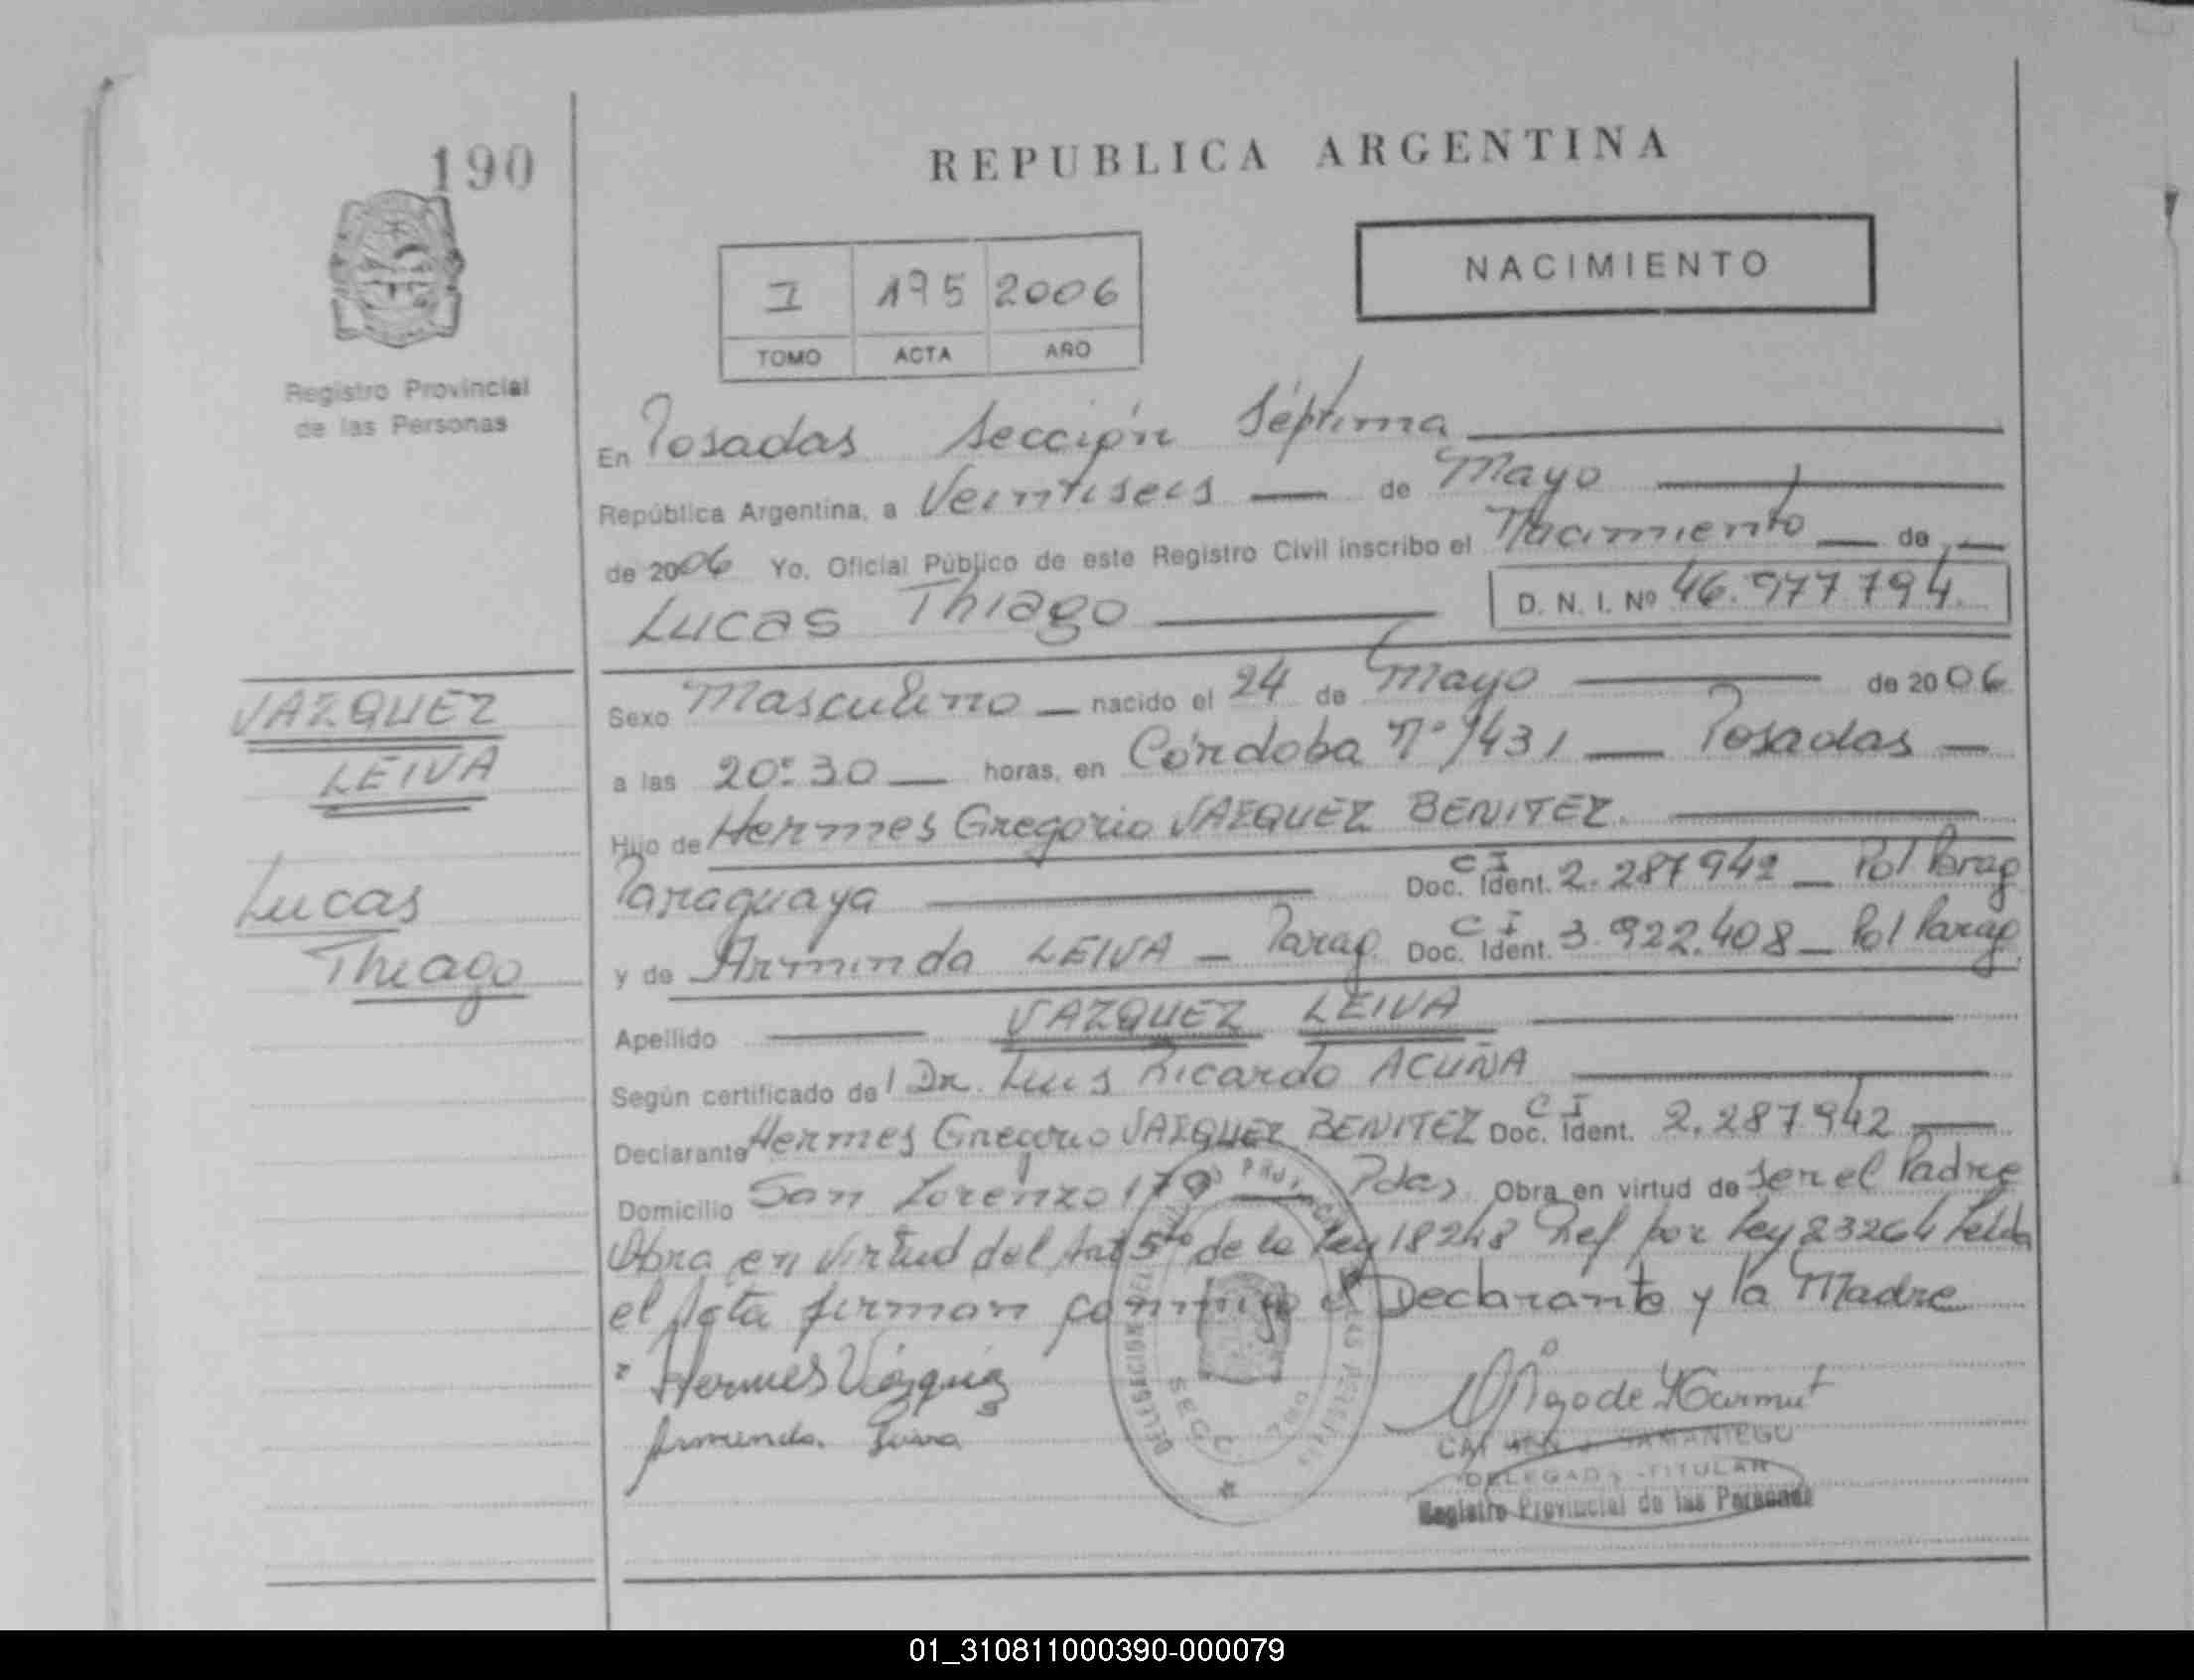 190
REPUBLICA ARGENTINA
NACIMIENTO
I 195 2006
TOMO ACTA AÑO
Registro Provincial
de las Personas
En Posadas Sección Séptima
República Argentina, a Veintiseis de Mayo
de 2006 Yo, Oficial Público de este Registro Civil inscribo el Nacimiento de
Lucas Thiago D. N. I. Nº 46.977.794
VAZQUEZ
LEIVA
Lucas
Thiago
Sexo Masculino nacido el 24 de Mayo de 2006
a las 20:30 horas, en Córdoba Nº 1431 Posadas
Hijo de Hermes Gregorio VAZQUEZ BENITEZ.
Paraguaya Doc. Ident. C I 2.287942 Pol Parag
y de Arminda LEIVA Parag. Doc. Ident. C I 3.922.408 Pol Parag
Apellido VAZQUEZ LEIVA
Según certificado del Dr. Luis Ricardo ACUÑA
Declarante Hermes Gregorio VAZQUEZ BENITEZ Doc. Ident. C I 2.287942
Domicilio San Lorenzo 179 Pdas. Obra en virtud de Ser el Padre
Obra en virtud del Art 5to de la Ley 18248 Ref por Ley 23264 Leida
el Acta firman conmigo el Declarante y la Madre
Hermes Vázquez
Arminda Leiva
SAMANIEGO
DELEGADA TITULAR
Registro Provincial de las Personas
DELEGACION DEL
SECC
01_310811000390-000079